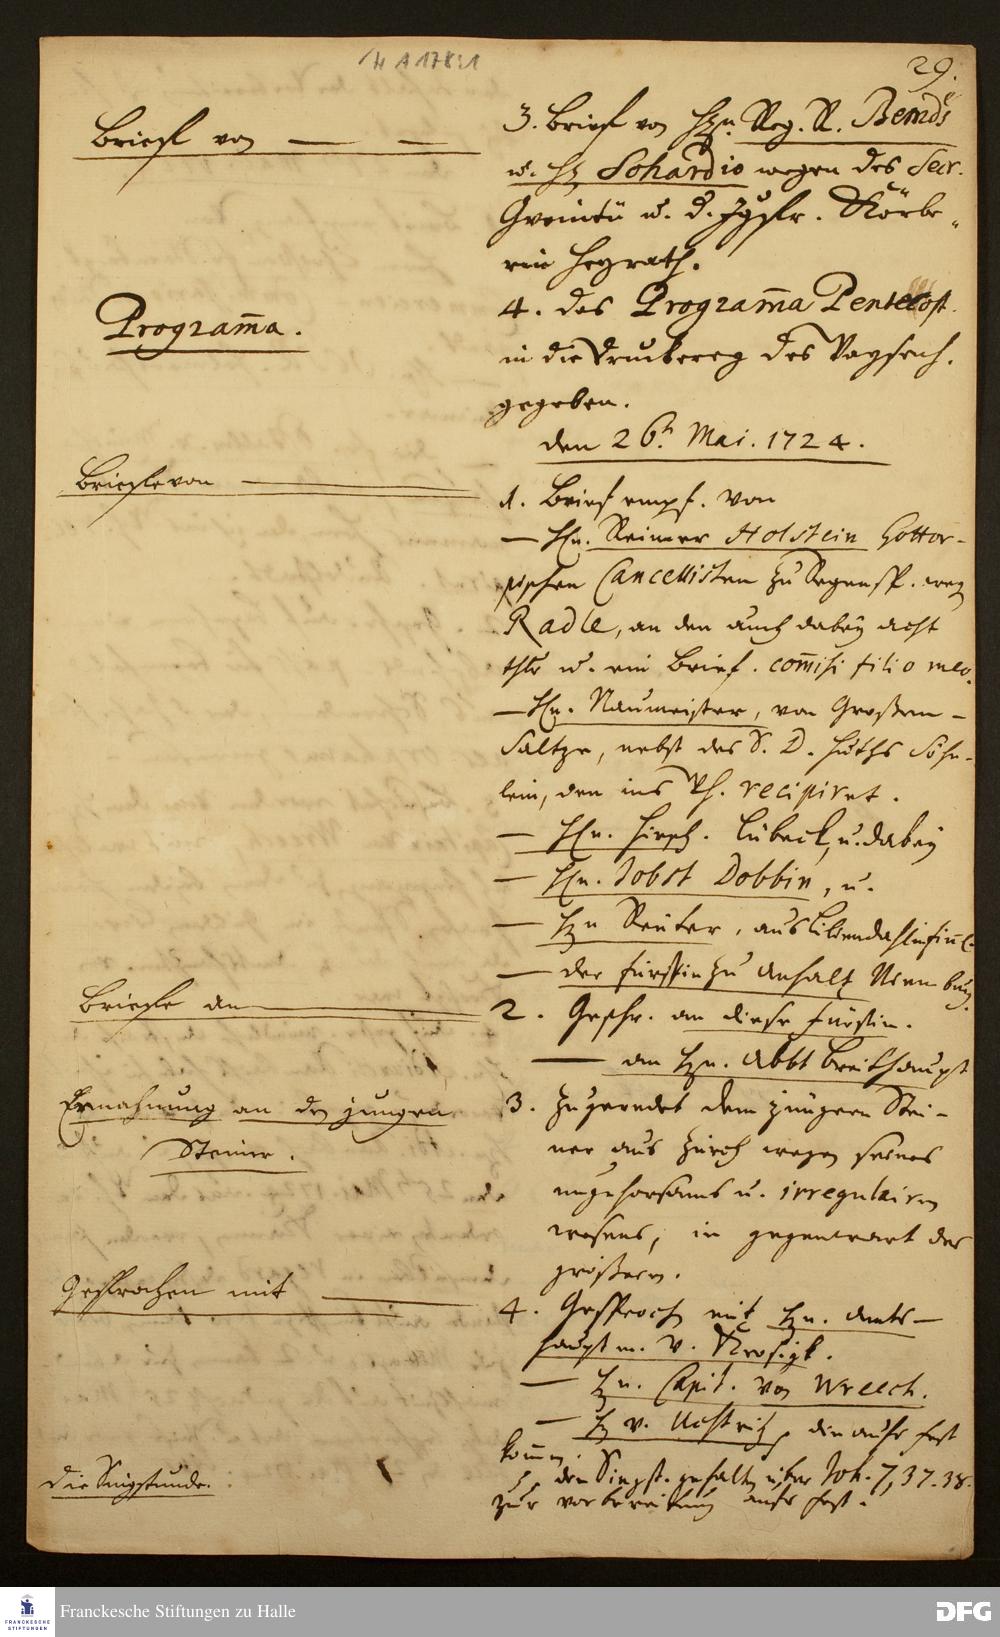 H A 178:1
29.
Briefe von
3. Brief von Hn. Reg. R. Bemds
u. H Sohardio wegen des Secr.
u. d. Jgfr. Körbe-
rin Heyrath.
Programm̄a.
4. das Programm̄a Pentecost.
in die Druckerey des Waysenh.
gegeben.
den 26t. Mai. 1724.
Briefe von
1. Brief empf. von
— Hn. Reimer Holstein Gottor-
pischen Cancellisten zu Regensp. weg
Radle, an den auch dabey acht
thlr u. ein Brief. com̄isi filio meo.
— Hn. Naumeister, von Großen-
Saltze, nebst des S. D. Huths Söhn-
lein, den ins Pæd. recipiret.
— Hn. Hirsch. Lübeck, u. dabey
— Hn. Jobst Dobbin, u.
— Hn Reuter, aus Liliendahl in Finl.
— der Fürstin zu Anhalt Nienburg.
Briefe an
2. Geschr. an diese Fürstin.
— an Hn. Abbt Breithaupt
Ermahnung an den jungern
Steiner.
3. Zugeredet dem jüngern Stei-
ner aus Zürch wegen seines
ungehorsams u. irregulairen
wesens, in gegenwart des
größern.
Gesprochen mit
4. Gesproch mit Hn. Amts-
hauptm. v. Krosigk.
— Hn. Capit. von Wreech.
— H v. Uchtritz, die aufs Fest
kom̄en.
Die Singstunde.
5. den Singst. gehalten über Joh. 7, 37. 38.
zur vorbereitung aufs Fest.
FRANCKESCHE
STIFTUNGEN
Franckesche Stiftungen zu Halle
DFG